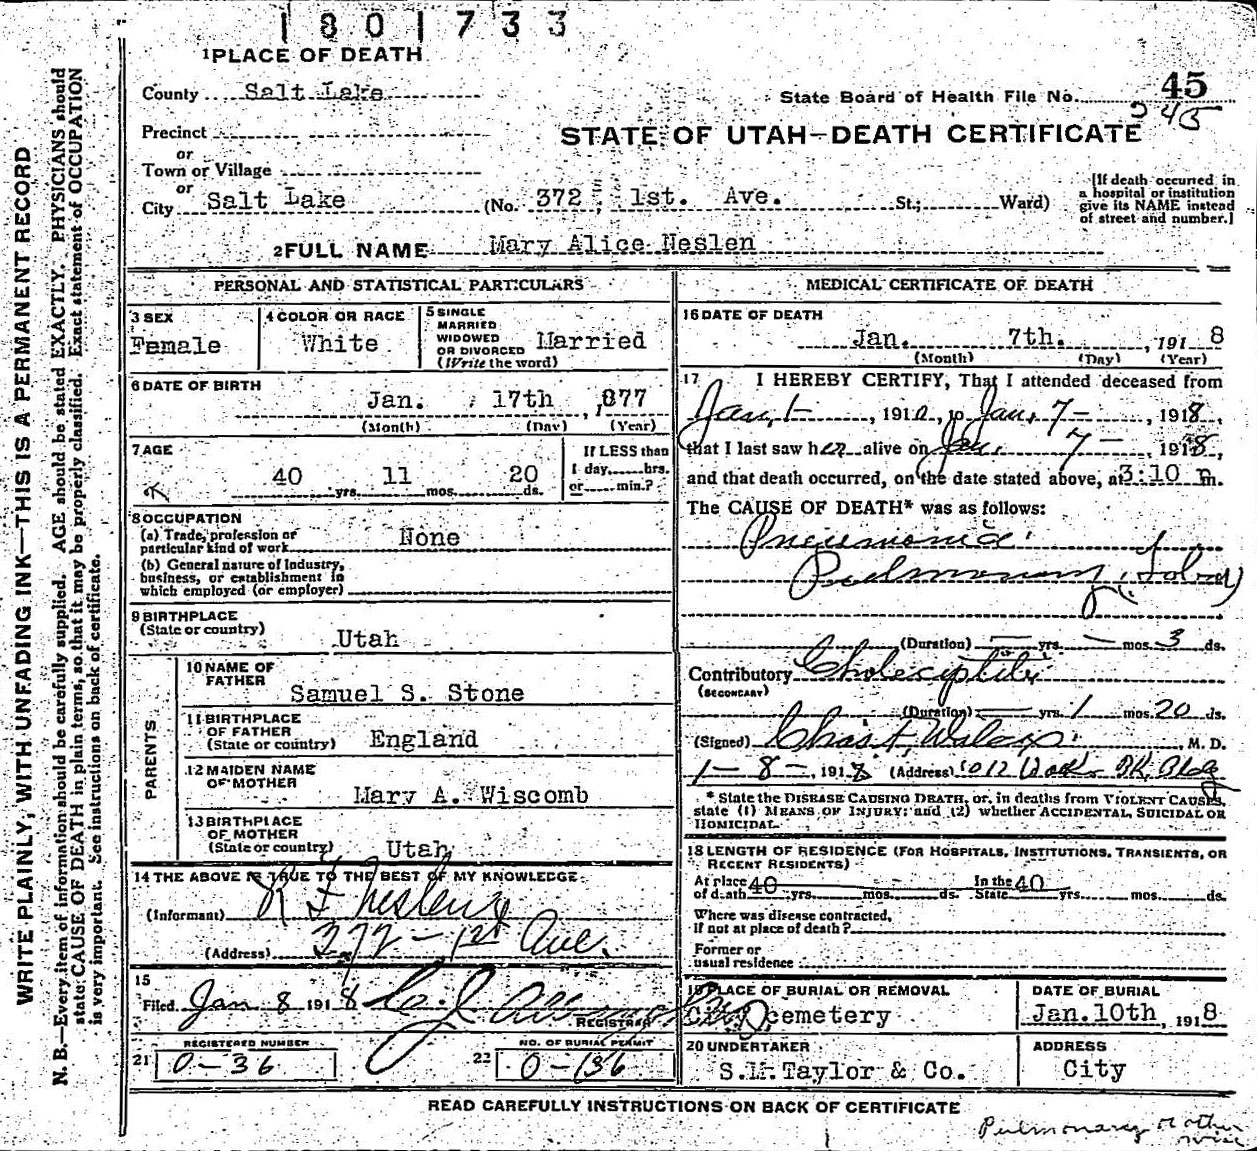 1801733
1 PLACE OF DEATH
County Salt Lake
State Board of Health File No. 45
Precinct
or
Town or Village
or
City Salt Lake (No. 372, 1st. Ave. St.; Ward)
STATE OF UTAH—DEATH CERTIFICATE
[If death occurred in
a hospital or institution
give its NAME instead
of street and number.]
2 FULL NAME Mary Alice Neslen
PERSONAL AND STATISTICAL PARTICULARS
3 SEX
Female
4 COLOR OR RACE
White
5 SINGLE
MARRIED
WIDOWED
OR DIVORCED
(Write the word)
Married
6 DATE OF BIRTH
Jan. 17th, 1877
(Month) (Day) (Year)
7 AGE
40 yrs. 11 mos. 20 ds.
If LESS than
1 day, hrs.
or min.?
8 OCCUPATION
(a) Trade, profession or
particular kind of work None
(b) General nature of Industry,
business, or establishment in
which employed (or employer)
9 BIRTHPLACE
(State or country) Utah
PARENTS
10 NAME OF
FATHER
Samuel S. Stone
11 BIRTHPLACE
OF FATHER
(State or country) England
12 MAIDEN NAME
OF MOTHER
Mary A. Wiscomb
13 BIRTHPLACE
OF MOTHER
(State or country) Utah
14 THE ABOVE IS TRUE TO THE BEST OF MY KNOWLEDGE
(Informant) R F Neslen
(Address) 372 - 1st Ave.
15
Filed Jan 8 1918
REGISTRAR
21 REGISTERED NUMBER
0-36
22 NO. OF BURIAL PERMIT
0-136
MEDICAL CERTIFICATE OF DEATH
16 DATE OF DEATH
Jan. 7th. , 1918
(Month) (Day) (Year)
17 I HEREBY CERTIFY, That I attended deceased from
Jan, 1- , 191 , to Jan, 7- 1918,
that I last saw her alive on Jan. 7- 1918,
and that death occurred, on the date stated above, at 3:10 m.
The CAUSE OF DEATH* was as follows:
Pneumonia
Pulmonary (Lobar)
(Duration) yrs. mos. 3 ds.
Contributory
(SECONDARY)
(Duration) yrs. 1 mos. 20 ds.
(Signed) Chas. F. Wilcox. M. D.
1-8-, 1918 (Address) Bk. Bldg
* State the DISEASE CAUSING DEATH, or, in deaths from VIOLENT CAUSES,
state (1) MEANS OF INJURY; and (2) whether ACCIDENTAL, SUICIDAL OR
HOMICIDAL.
18 LENGTH OF RESIDENCE (FOR HOSPITALS, INSTITUTIONS, TRANSIENTS, OR
RECENT RESIDENTS)
At place
of death 40 yrs. mos. ds. In the State 40 yrs. mos. ds.
Where was disease contracted,
If not at place of death?
Former or
usual residence
19 PLACE OF BURIAL OR REMOVAL
City Cemetery
DATE OF BURIAL
Jan. 10th, 1918
20 UNDERTAKER
S.M. Taylor & Co.
ADDRESS
City
READ CAREFULLY INSTRUCTIONS ON BACK OF CERTIFICATE
Pulmonary
WRITE PLAINLY, WITH UNFADING INK—THIS IS A PERMANENT RECORD
N. B.—Every item of information should be carefully supplied. AGE should be stated EXACTLY. PHYSICIANS should
state CAUSE OF DEATH in plain terms, so that it may be properly classified. Exact statement of OCCUPATION
is very important. See instructions on back of certificate.